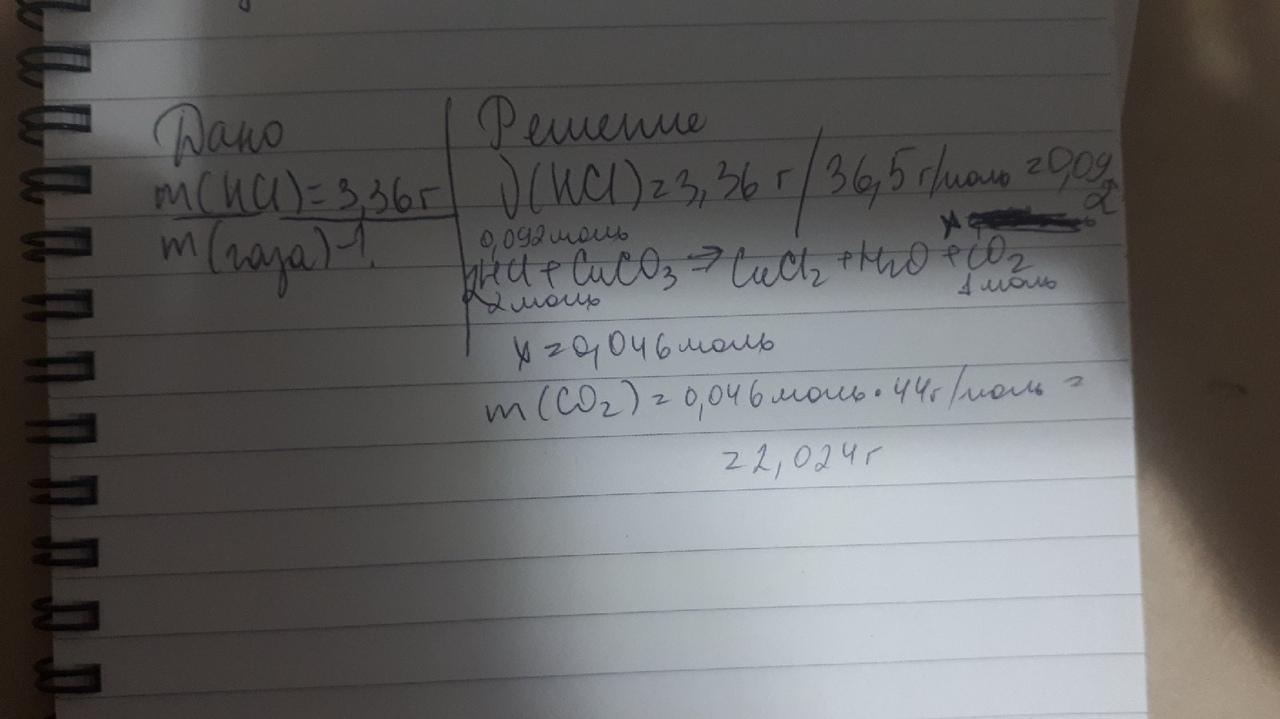 Дано
m(HCl)=3,36г
m(газа)-?
Решение
ν(HCl)=3,36 г / 36,5 г/моль =0,092
0,092 моль
x
2HCl + CuCO3 → CuCl2 + H2O + CO2
2 моль
1 моль
x = 0,046 моль
m(CO2) = 0,046 моль · 44г/моль =
= 2,024г